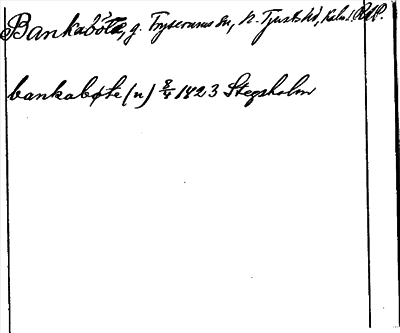 Bankaböte, g. Tryserums sn, N. Tjusts hd, Kalm. l. RAP.
bankabøte (n) 8/4 1823 Stegeholm